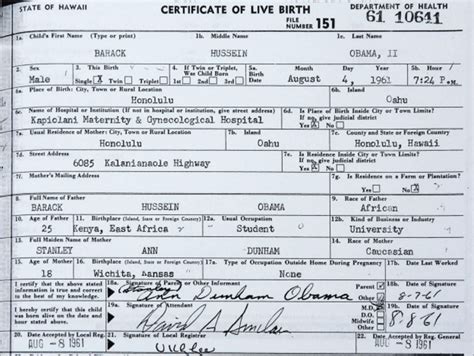 STATE OF HAWAII CERTIFICATE OF LIVE BIRTH DEPARTMENT OF HEALTH
FILE NUMBER 151 61 10641
1a. Child's First Name (Type or print) 1b. Middle Name 1c. Last Name
BARACK HUSSEIN OBAMA, II
2. Sex 3. This Birth 4. If Twin or Triplet, Was Child Born 5a. Birth Date Month Day Year 5b. Hour
Male Single X Twin Triplet 1st 2nd 3rd August 4, 1961 7:24 P.M.
6a. Place of Birth: City, Town or Rural Location 6b. Island
Honolulu Oahu
6c. Name of Hospital or Institution (If not in hospital or institution, give street address) 6d. Is Place of Birth Inside City or Town Limits? If no, give judicial district
Kapiolani Maternity & Gynecological Hospital Yes X No
7a. Usual Residence of Mother: City, Town or Rural Location 7b. Island 7c. County and State or Foreign Country
Honolulu Oahu Honolulu, Hawaii
7d. Street Address 7e. Is Residence Inside City or Town Limits? If no, give judicial district
6085 Kalanianaole Highway Yes X No
7f. Mother's Mailing Address 7g. Is Residence on a Farm or Plantation?
Yes No X
8. Full Name of Father 9. Race of Father
BARACK HUSSEIN OBAMA African
10. Age of Father 11. Birthplace (Island, State or Foreign Country) 12a. Usual Occupation 12b. Kind of Business or Industry
25 Kenya, East Africa Student University
13. Full Maiden Name of Mother 14. Race of Mother
STANLEY ANN DUNHAM Caucasian
15. Age of Mother 16. Birthplace (Island, State or Foreign Country) 17a. Type of Occupation Outside Home During Pregnancy 17b. Date Last Worked
18 Wichita, Kansas None
I certify that the above stated information is true and correct to the best of my knowledge. 18a. Signature of Parent or Other Informant Parent Other 18b. Date of Signature
(Stanley) Ann Dunham Obama 8-7-61
I hereby certify that this child was born alive on the date and hour stated above. 19a. Signature of Attendant M.D. D.O. Midwife Other 19b. Date of Signature
8-8-61
20. Date Accepted by Local Reg. 21. Signature of Local Registrar 22. Date Accepted by Reg. General
AUG -8 1961 AUG -8 1961